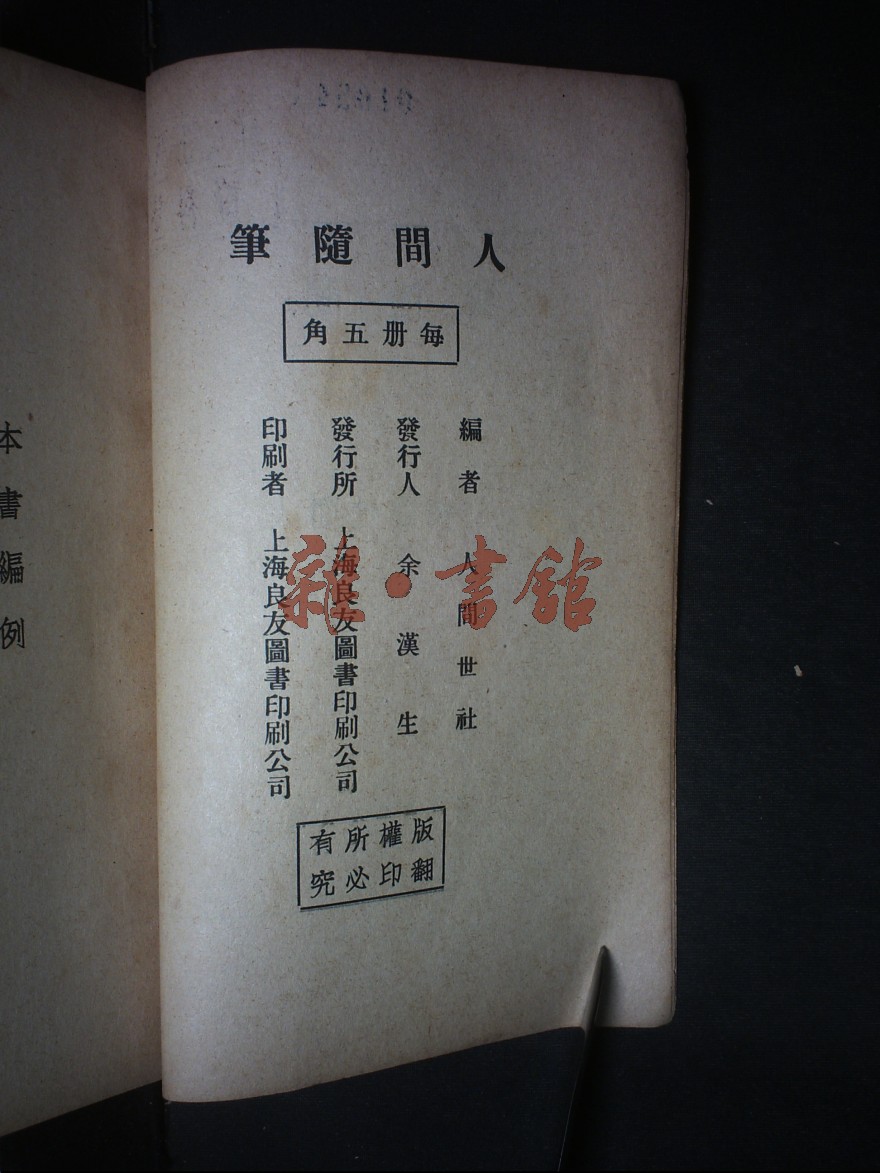 人間隨筆
每册五角
編者 人間世社
發行人 余漢生
發行所 上海良友圖書印刷公司
印刷者 上海良友圖書印刷公司
版權所有
翻印必究
本書編例
雜·書館